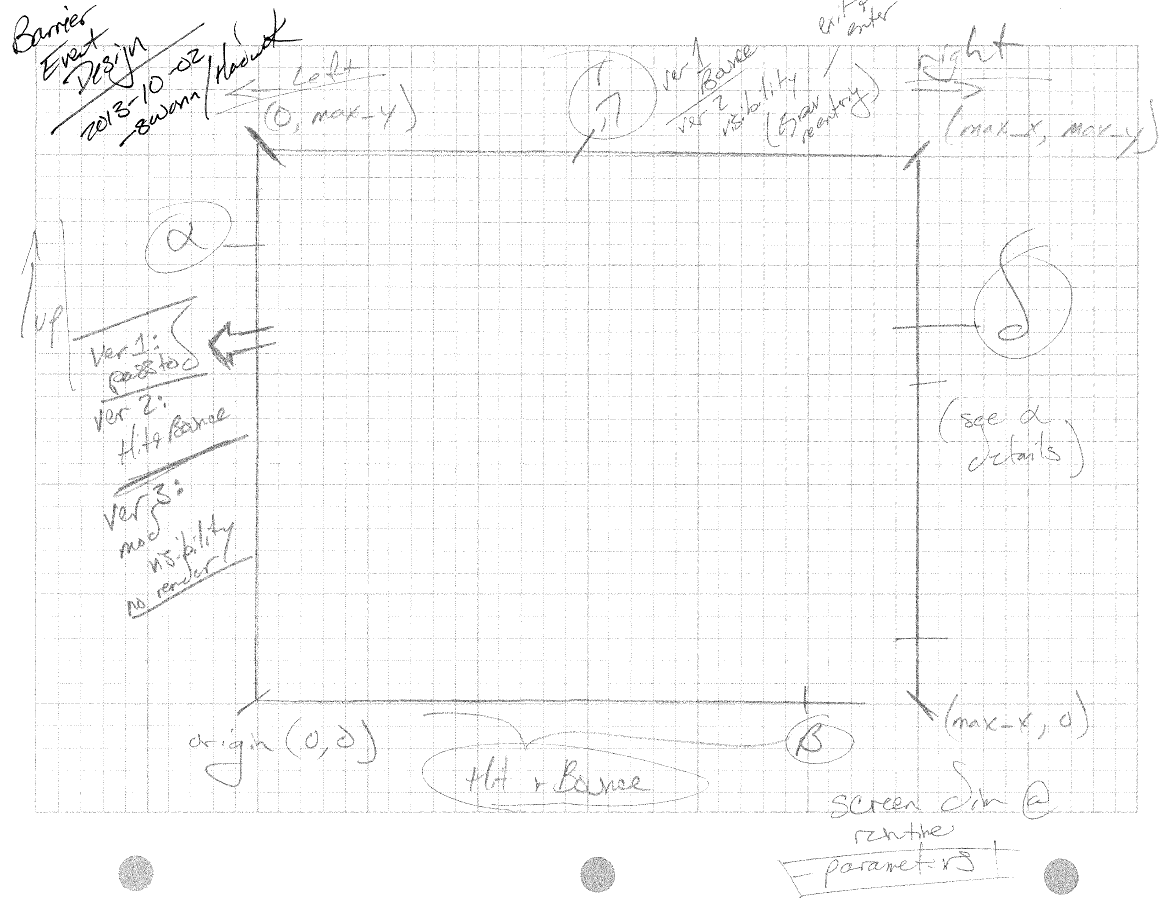 Barrier
Event
Design
2013-10-02
-swann/
← Left
(0, max_y)
ver 1
Bounce
ver 2
visibility
exit &
enter
reentry)
right
(max_x, max_y)
α
up
ver 1:
ver 2:
Hit & Bounce
ver 3:
mod
visibility
no render
δ
(see α
details)
origin (0,0)
β
(max-x, 0)
Hit & Bounce
screen dim @
runtime
parameters!